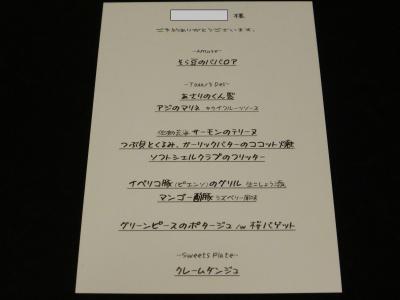 様
ご予約ありがとうございます。
~Amuse~
そら豆のババロア
~Today's Deli~
あさりのくん製
アジのマリネ キウイフルーツソース
サーモンのテリーヌ
つぶ貝とくるみ、ガーリックバターのココット焼
ソフトシェルクラブのフリッター
イベリコ豚(ピエンソ)のグリル 生こしょう添
マンゴー酢豚 ラズベリー風味
グリーンピースのポタージュ /w 桜バゲット
~Sweets Plate~
クレームダンジュ